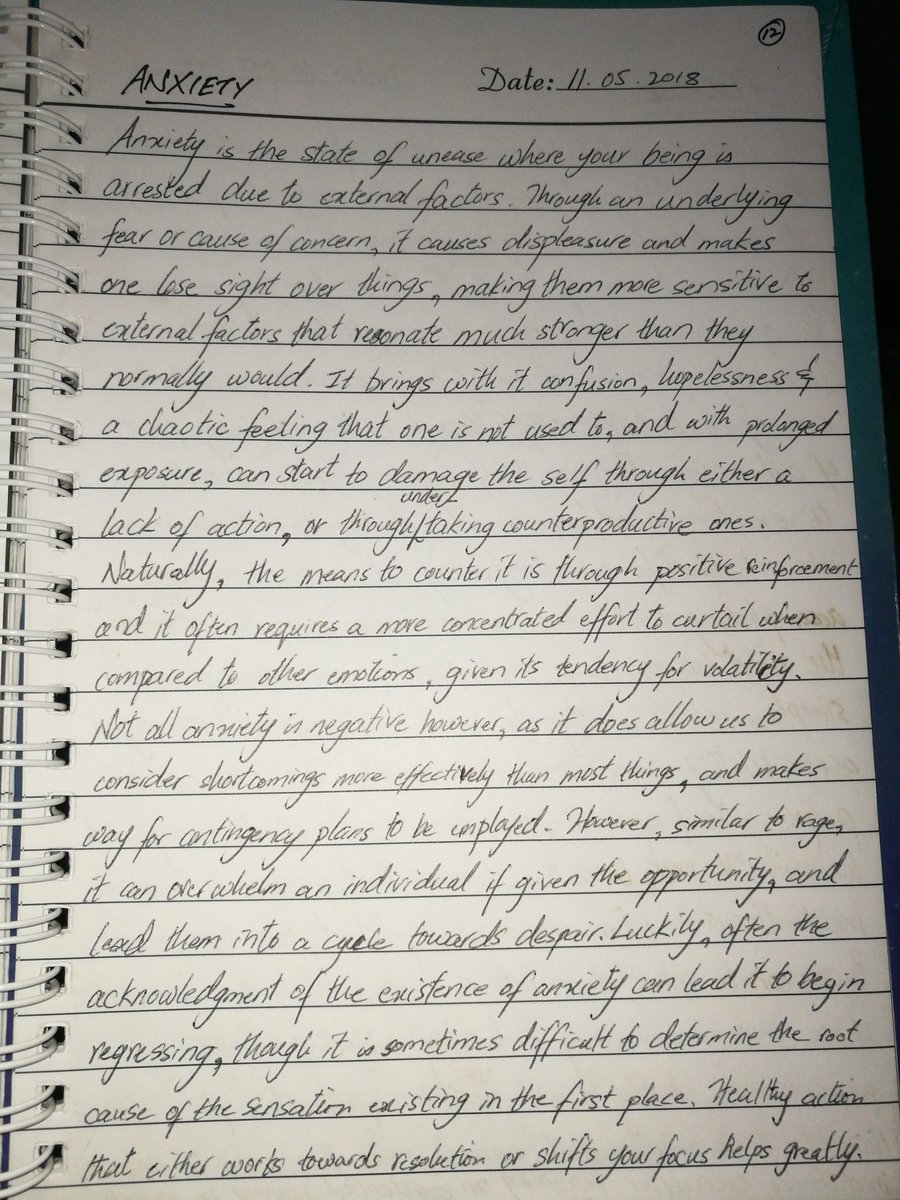 12
ANXIETY
Date: 11.05.2018
Anxiety is the state of unease where your being is
arrested due to external factors. Through an underlying
fear or cause of concern, it causes displeasure and makes
one lose sight over things, making them more sensitive to
external factors that resonate much stronger than they
normally would. It brings with it confusion, hopelessness &
a chaotic feeling that one is not used to, and with prolonged
exposure, can start to damage the self through either a
lack of action, or through/undertaking counterproductive ones.
Naturally, the means to counter it is through positive reinforcement
and it often requires a more concentrated effort to curtail when
compared to other emotions, given its tendency for volatility.
Not all anxiety is negative however, as it does allow us to
consider shortcomings more effectively than most things, and makes
way for contingency plans to be employed. However, similar to rage,
it can overwhelm an individual if given the opportunity, and
lead them into a cycle towards despair. Luckily, often the
acknowledgment of the existence of anxiety can lead it to begin
regressing, though it is sometimes difficult to determine the root
cause of the sensation existing in the first place. Healthy action
that either works towards resolution or shifts your focus helps greatly.